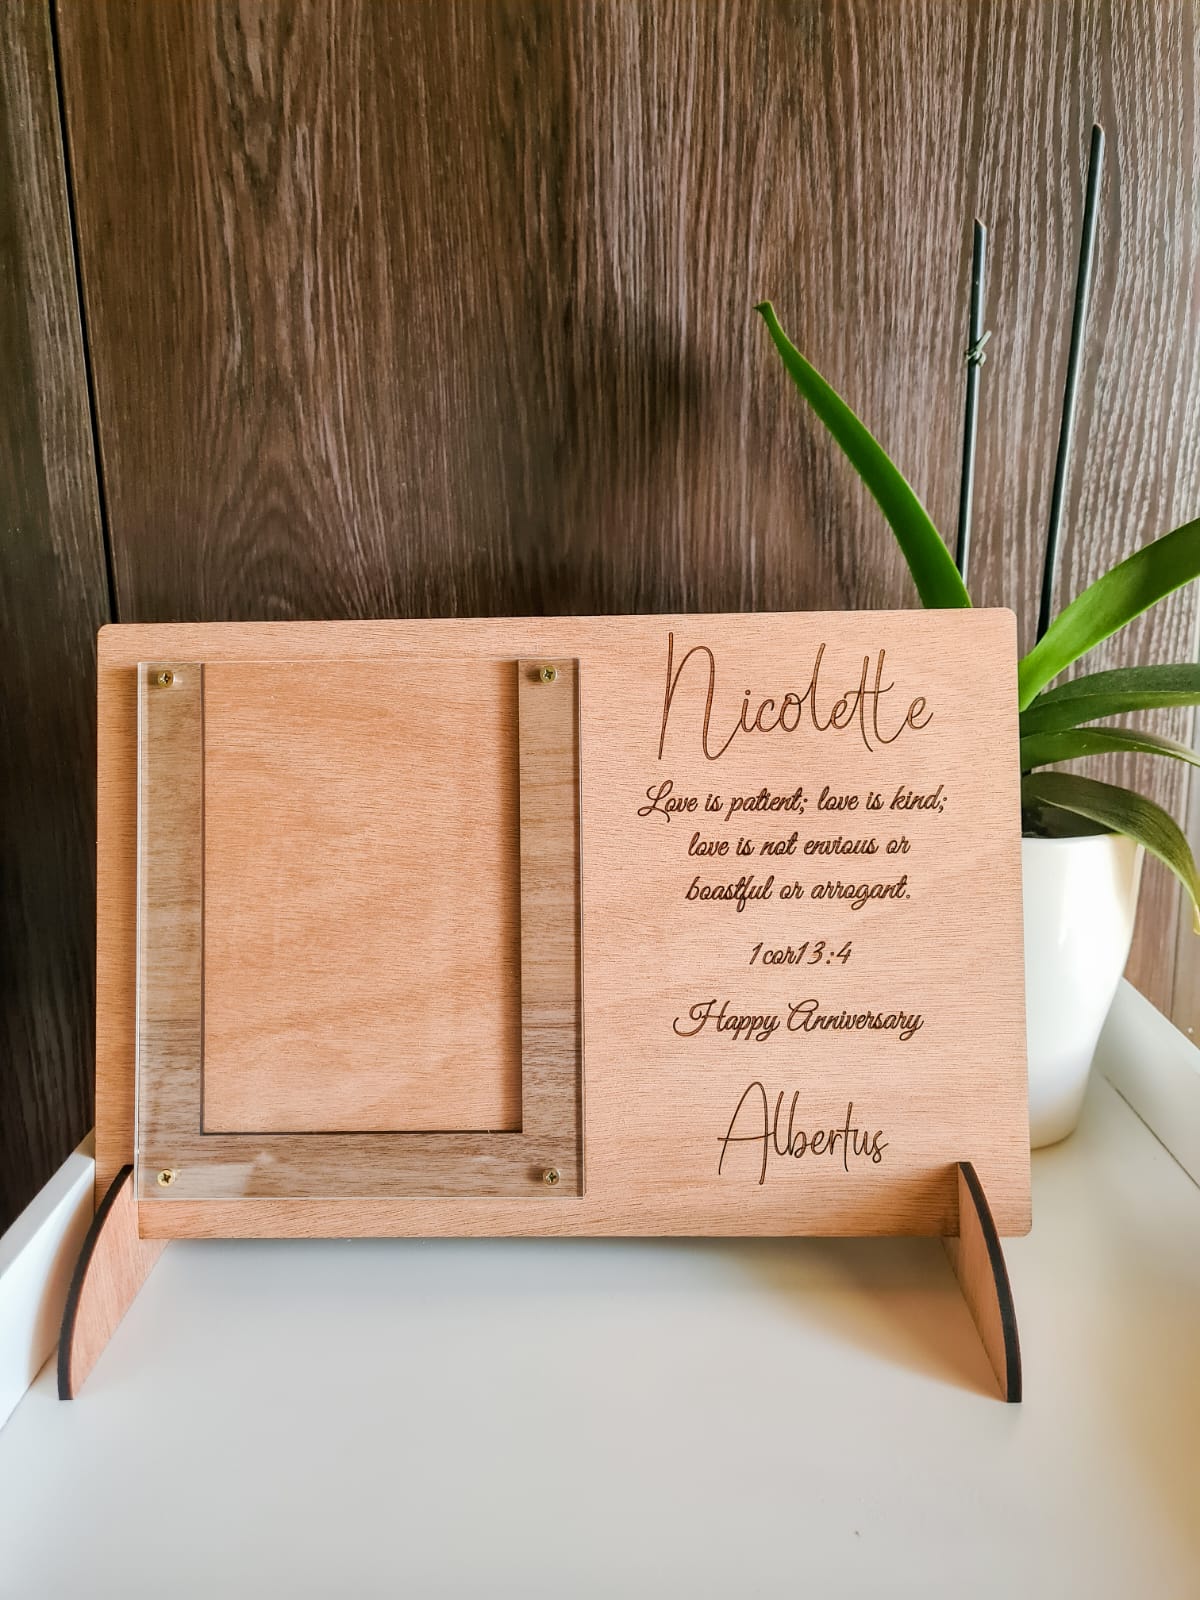 Nicolette
Love is patient; love is kind;
love is not envious or
boastful or arrogant.
1cor13:4
Happy Anniversary
Albertus